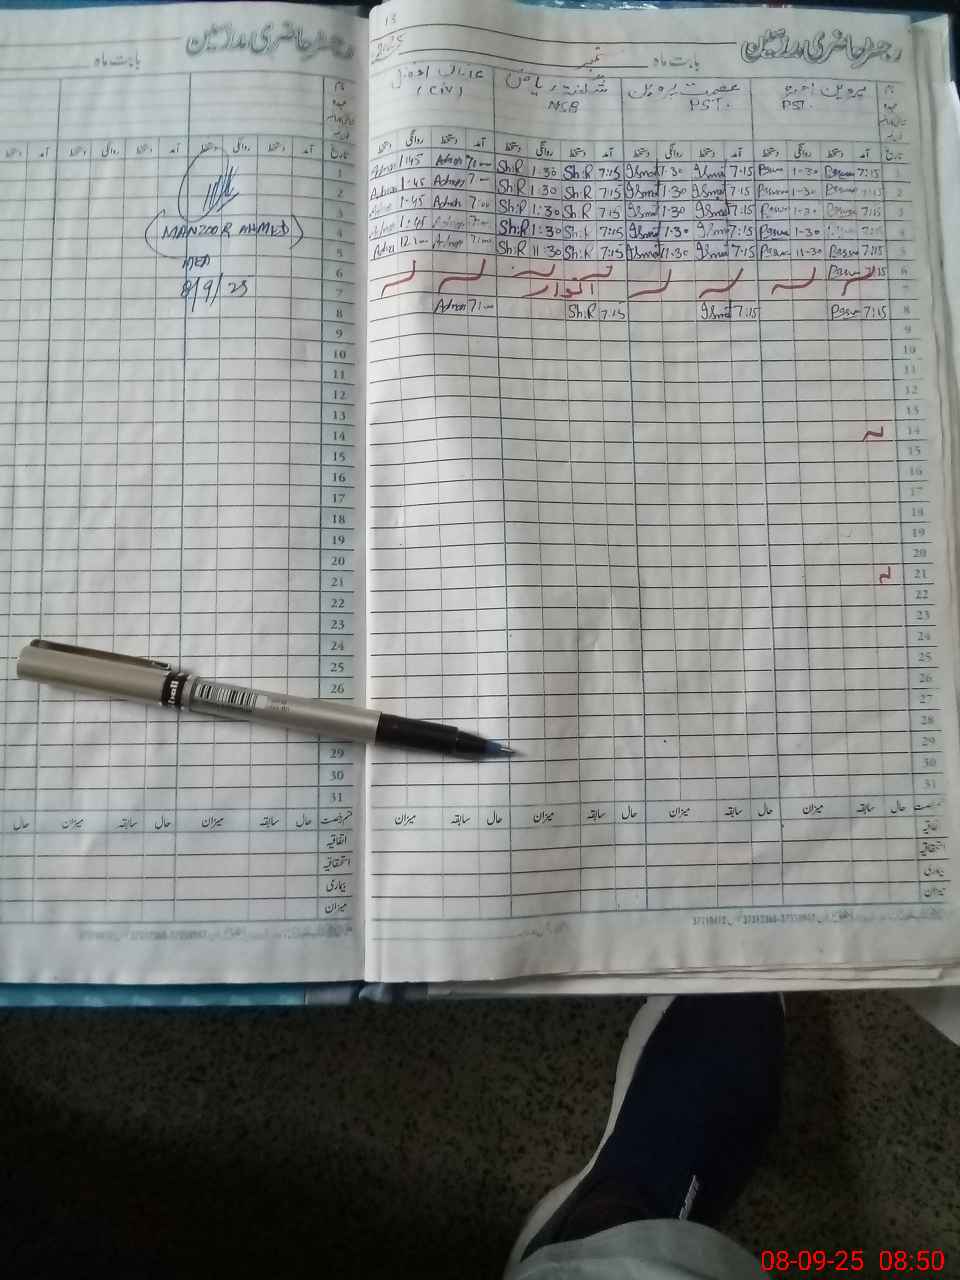 رجسٹر حاضری مدرسین
بابت ماہ
رجسٹر حاضری مدرسین
بابت ماہ ستمبر
13
2025
نام پروین اختر عصمت پروین شگفتہ ریاض
PST. PST. NSB (CIV)
تاریخ آمد دستخط روانگی دستخط آمد دستخط روانگی دستخط آمد دستخط روانگی دستخط آمد دستخط روانگی دستخط
1 7:15 1-30 7:15 Ismat 1-30 Ismat 7:15 Sh:R 1:30 Sh:R 7:00 Adnan 1:45
2 7:15 1-30 7:15 Ismat 1-30 Ismat 7:15 Sh:R 1:30 Sh:R 7:00 Adnan 1-45
3 7:15 1-30 7:15 Ismat 1-30 Ismat 7:15 Sh:R 1:30 Sh:R 7:00 Adnan 1-45
4 7:15 1-30 7:15 Ismat 1-30 Ismat 7:15 Sh:R 1:30 Sh:R 7:00 Adnan 1:45
5 7:15 11-30 7:15 Ismat 11-30 Ismat 7:15 Sh:R 11:30 Sh:R 7:00 Adnan 12:00
6 7:15
7 اتوار
8 7:15 7:15 Ismat 7:15 Sh:R 7:00 Adnan
9
10
11
12
13
14
15
16
17
18
19
20
21
22
23
24
25
26
27
28
29
30
31
قسم رخصت حال سابقہ میزان حال سابقہ میزان حال سابقہ میزان حال سابقہ میزان
اتفاقیہ
استحقاقیہ
بیماری
میزان
تاریخ آمد دستخط روانگی دستخط آمد دستخط روانگی دستخط آمد
1
2
3
4
5
6
7
8
9
10
11
12
13
14
15
16
17
18
19
20
21
22
23
24
25
26
29
30
31
(MANZOOR AHMED)
MEA
8/9/25
قسم رخصت حال سابقہ میزان حال سابقہ میزان حال
اتفاقیہ
استحقاقیہ
بیماری
میزان
08-09-25 08:50